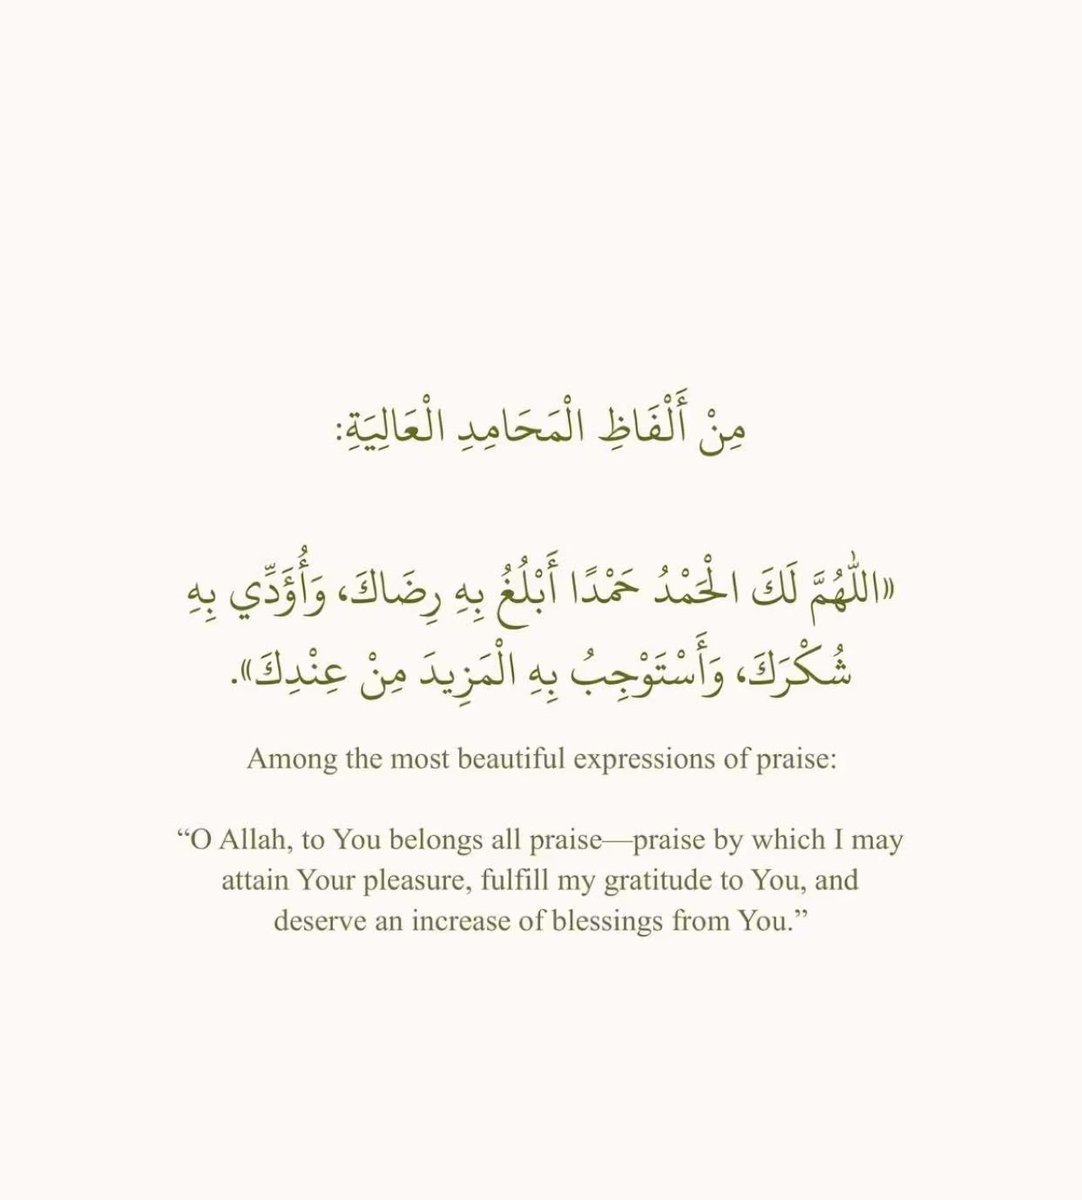 مِنْ أَلْفَاظِ الْمَحَامِدِ الْعَالِيَةِ:
«اللّٰهُمَّ لَكَ الْحَمْدُ حَمْدًا أَبْلُغُ بِهِ رِضَاكَ، وَأُؤَدِّي بِهِ
شُكْرَكَ، وَأَسْتَوْجِبُ بِهِ الْمَزِيدَ مِنْ عِنْدِكَ».
Among the most beautiful expressions of praise:
“O Allah, to You belongs all praise—praise by which I may
attain Your pleasure, fulfill my gratitude to You, and
deserve an increase of blessings from You.”